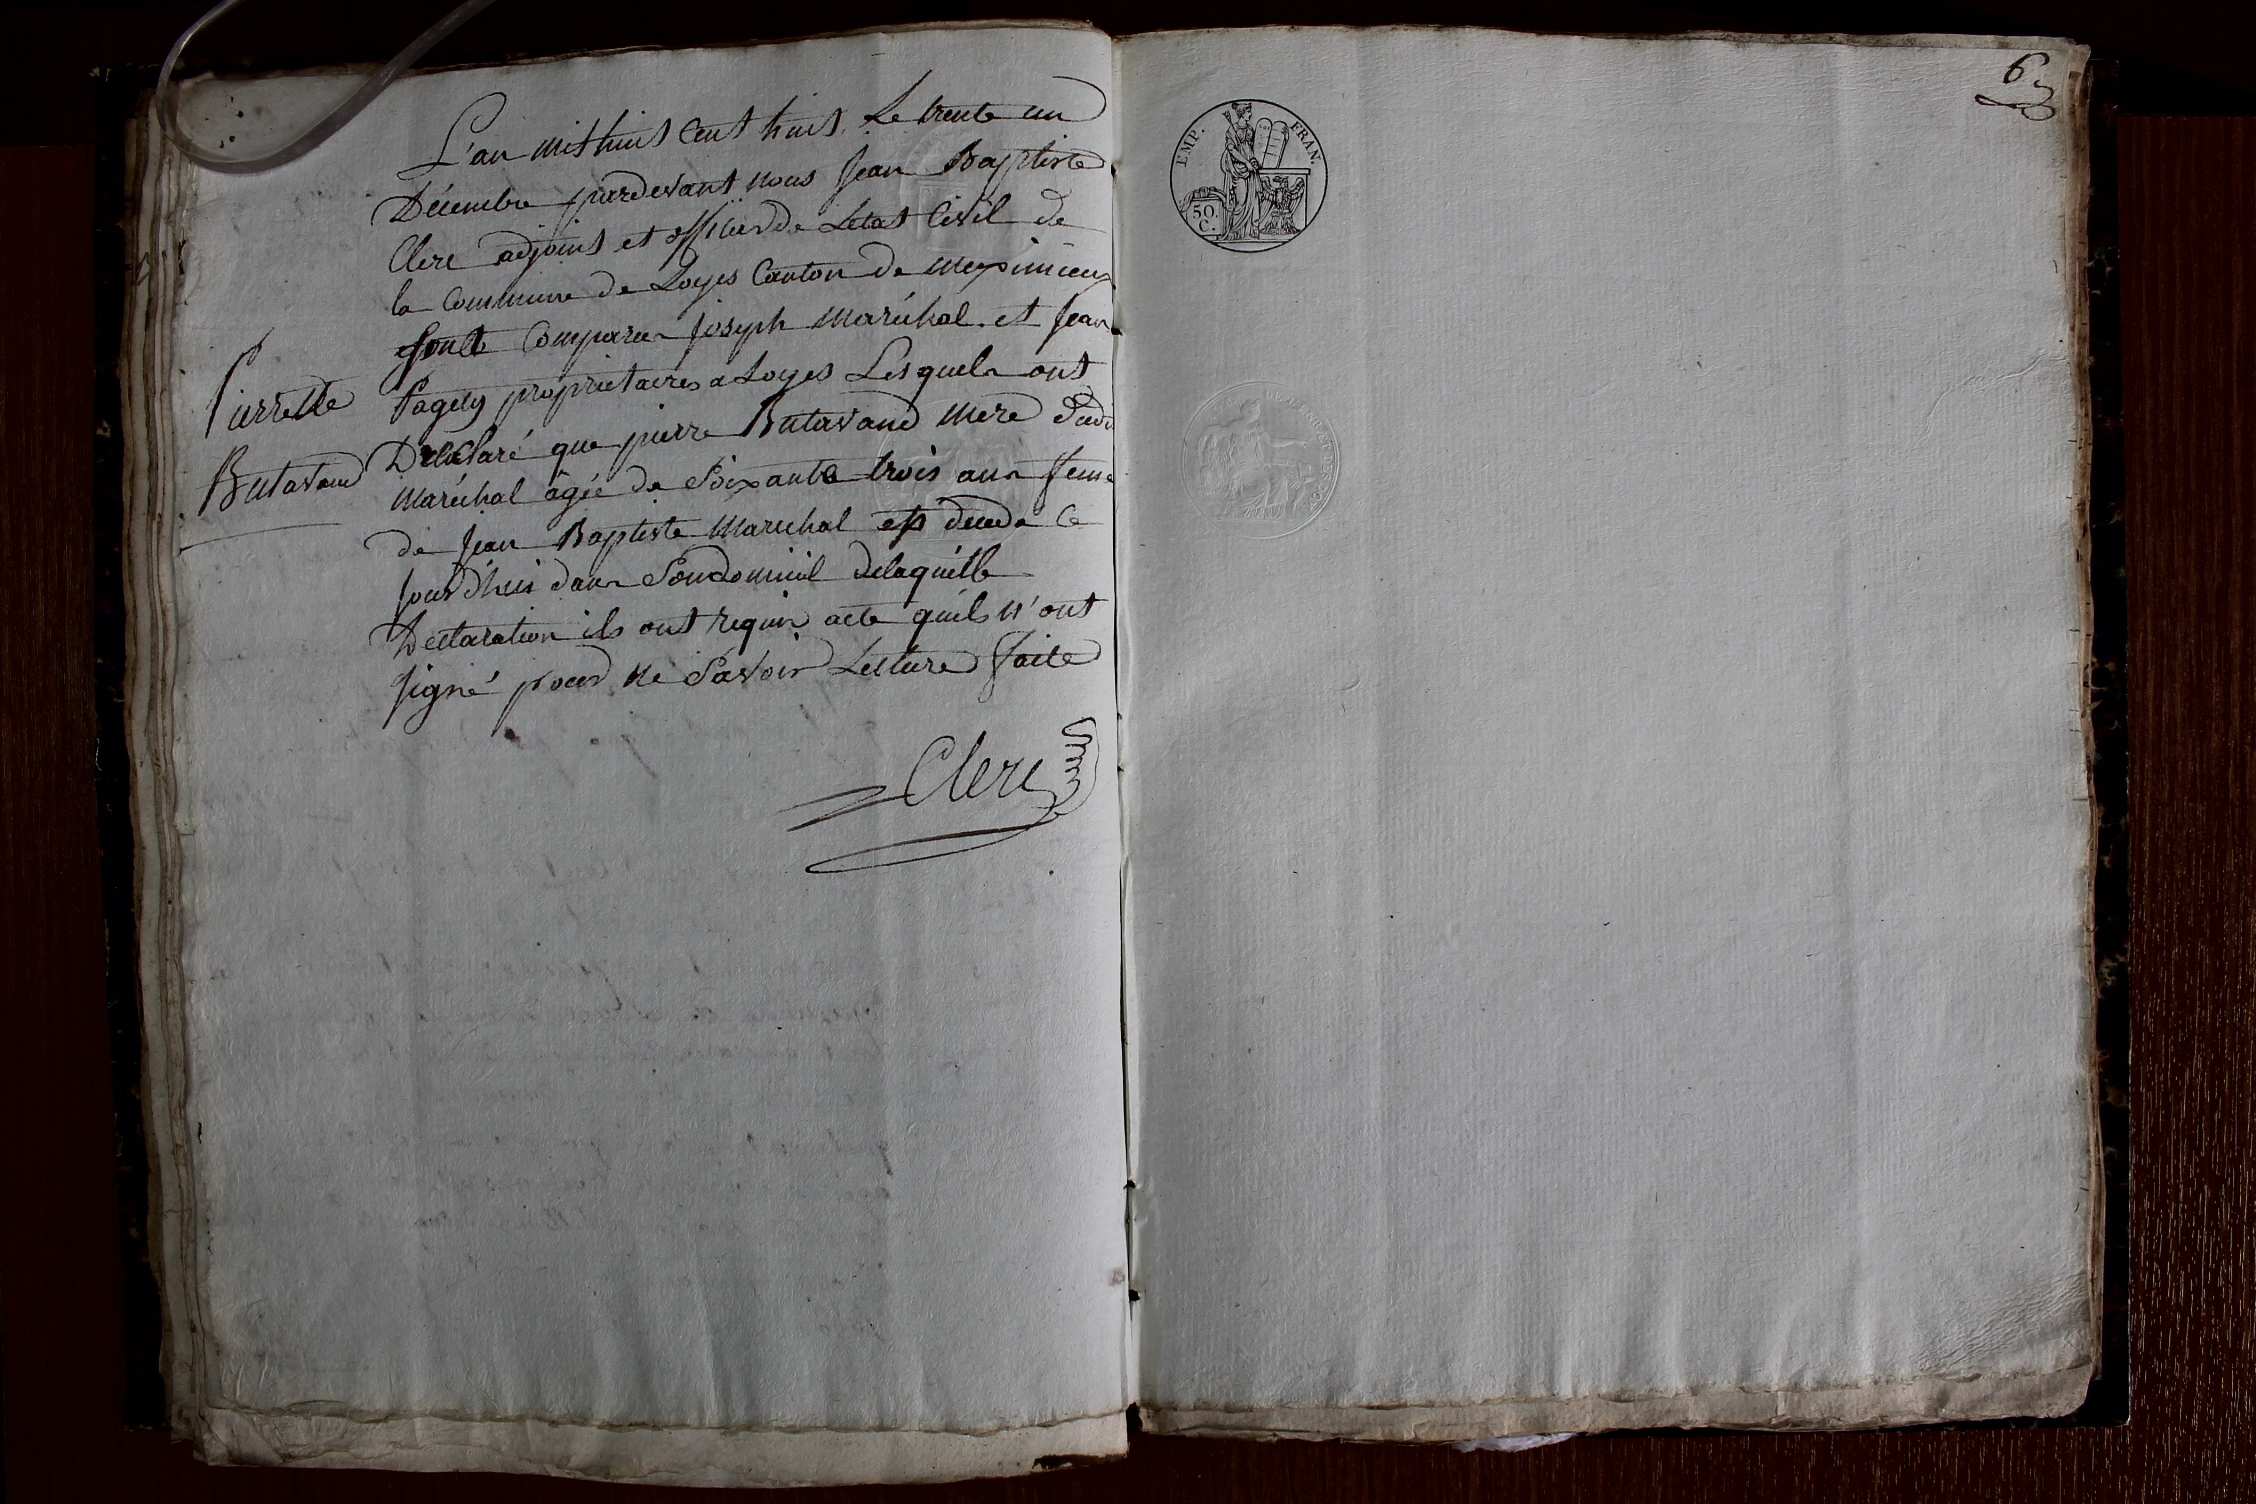 L'an mil huit cent huit. Le trente un
Décembre pardevant nous Jean Baptiste
Clerc adjoint et officier de Letat Civil de
la Commune de Loyes Canton de meximieux
sont Comparu Joseph Maréchal. et Jean
proprietaires a Loyes Lesquels ont
Declaré que pierre Butavand mere dudi
Maréchal âgée de Soixante trois ans feme
de Jean Baptiste Marechal est decede ce
jourd'hui dans Son domicil delaquelle
Déclaration ils ont requis acte quils n'ont
signé pour ne Savoir Lecture faite
Clerc
Pierrette
Butavand
EMP. FRAN.
50.
C.